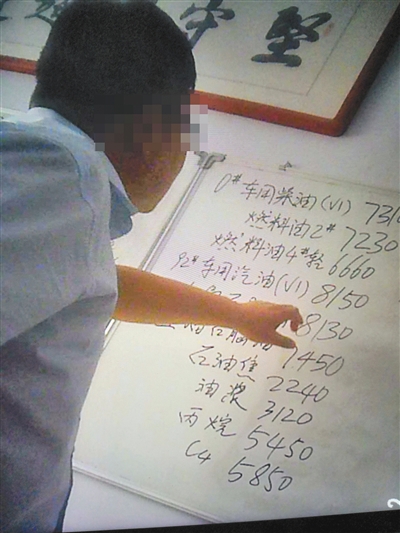 坚
0#车用柴油(VI) 7310
燃料油2# 7230
燃料油4#轻 6660
92#车用汽油(VI) 8150
8130
石脑油 7450
石油焦 2240
油浆 3120
丙烷 5450
C4 5850